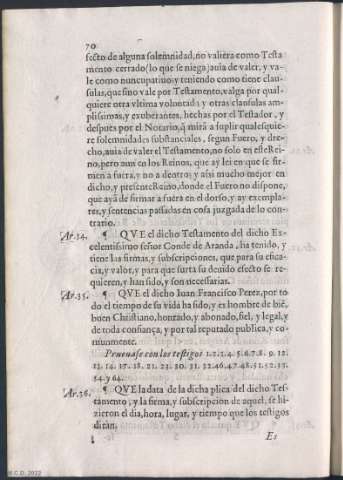 70
fecto de alguna solemnidad, no valiera como Testa
mento cerrado (lo que se niega) auia de valer, y va-
le como nuncupatiuo: y teniendo como tiene clau-
sulas, que sino vale por Testamento, valga por qual-
quiere otra vltima voluntad: y otras clausulas am-
plissimas, y exuberantes, hechas por el Testador, y
despues por el Notario, q̃ mirã a suplir qualesquie-
re solemnidades substanciales, segun Fuero, y dre-
cho, auia de valer el Testamento, no solo en este Rei-
no, pero aun en los Reinos, que ay lei en que se fir-
men a fuera, y no a dentro; y assi mucho mejor en
dicho, y presente Reino, donde el Fuero no dispone,
que ayã de firmar a fuera en el dorso, y ay exempla-
res, y sentencias passadas en cosa juzgada de lo con-
trario.
Ar. 34. ¶ QVE el dicho Testamento del dicho Ex-
celentissimo señor Conde de Aranda, ha tenido, y
tiene las firmas, y subscripciones, que para su efica-
cia, y valor, y para que surta su deuido efecto se re-
quieren, y han sido, y son necessarias.
Ar. 35. ¶ QVE el dicho Iuan Francisco Perez, por to
do el tiempo de su vida ha sido, y es hombre de biẽ,
buen Christiano, honrado, y abonado, fiel, y legal, y
de toda confiança, y por tal reputado publica, y co-
munmente.
Prueuase con los testigos 1. 2. 3. 4. 5. 6. 7. 8. 9. 12.
13. 14. 17. 18. 21. 23. 30. 31. 32. 46. 47. 48. 51. 52. 53.
54. y 64.
Ar. 36. ¶ QVE la data de la dicha plica del dicho Tes-
tamento, y la firma, y subscripcion de aquel, se hi-
zieron el dia, hora, lugar, y tiempo que los testigos
diran.
Es
B.C.D. 2022